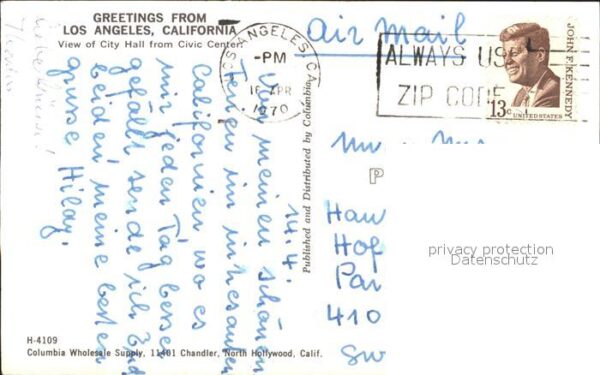 GREETINGS FROM
LOS ANGELES, CALIFORNIA
View of City Hall from Civic Center
LOS ANGELES, CA
-PM
APR
1970
ALWAYS USE
ZIP CODE
JOHN F. KENNEDY
13c UNITED STATES
Air Mail
14.4.
Von meinen schönen
Ferien im
Californien wo es
mir jeden Tag besser
gefällt sende ich Euch
beiden meine besten
grüsse Hilay.
Published and Distributed by Columbia
P
Haw
Hof
Par
410
SW
privacy protection
Datenschutz
H-4109
Columbia Wholesale Supply, 11401 Chandler, North Hollywood, Calif.